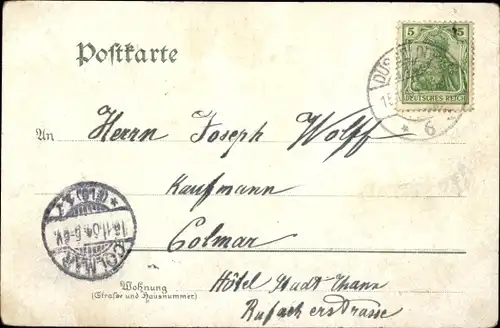 Postkarte
5 5
DEUTSCHES REICH
6
An Herrn Joseph Wolff
Kaufmann
Colmar
COLMAR
Wohnung
(Straße und Hausnummer)
Hôtel Stadt Thann
Rufacherstrasse